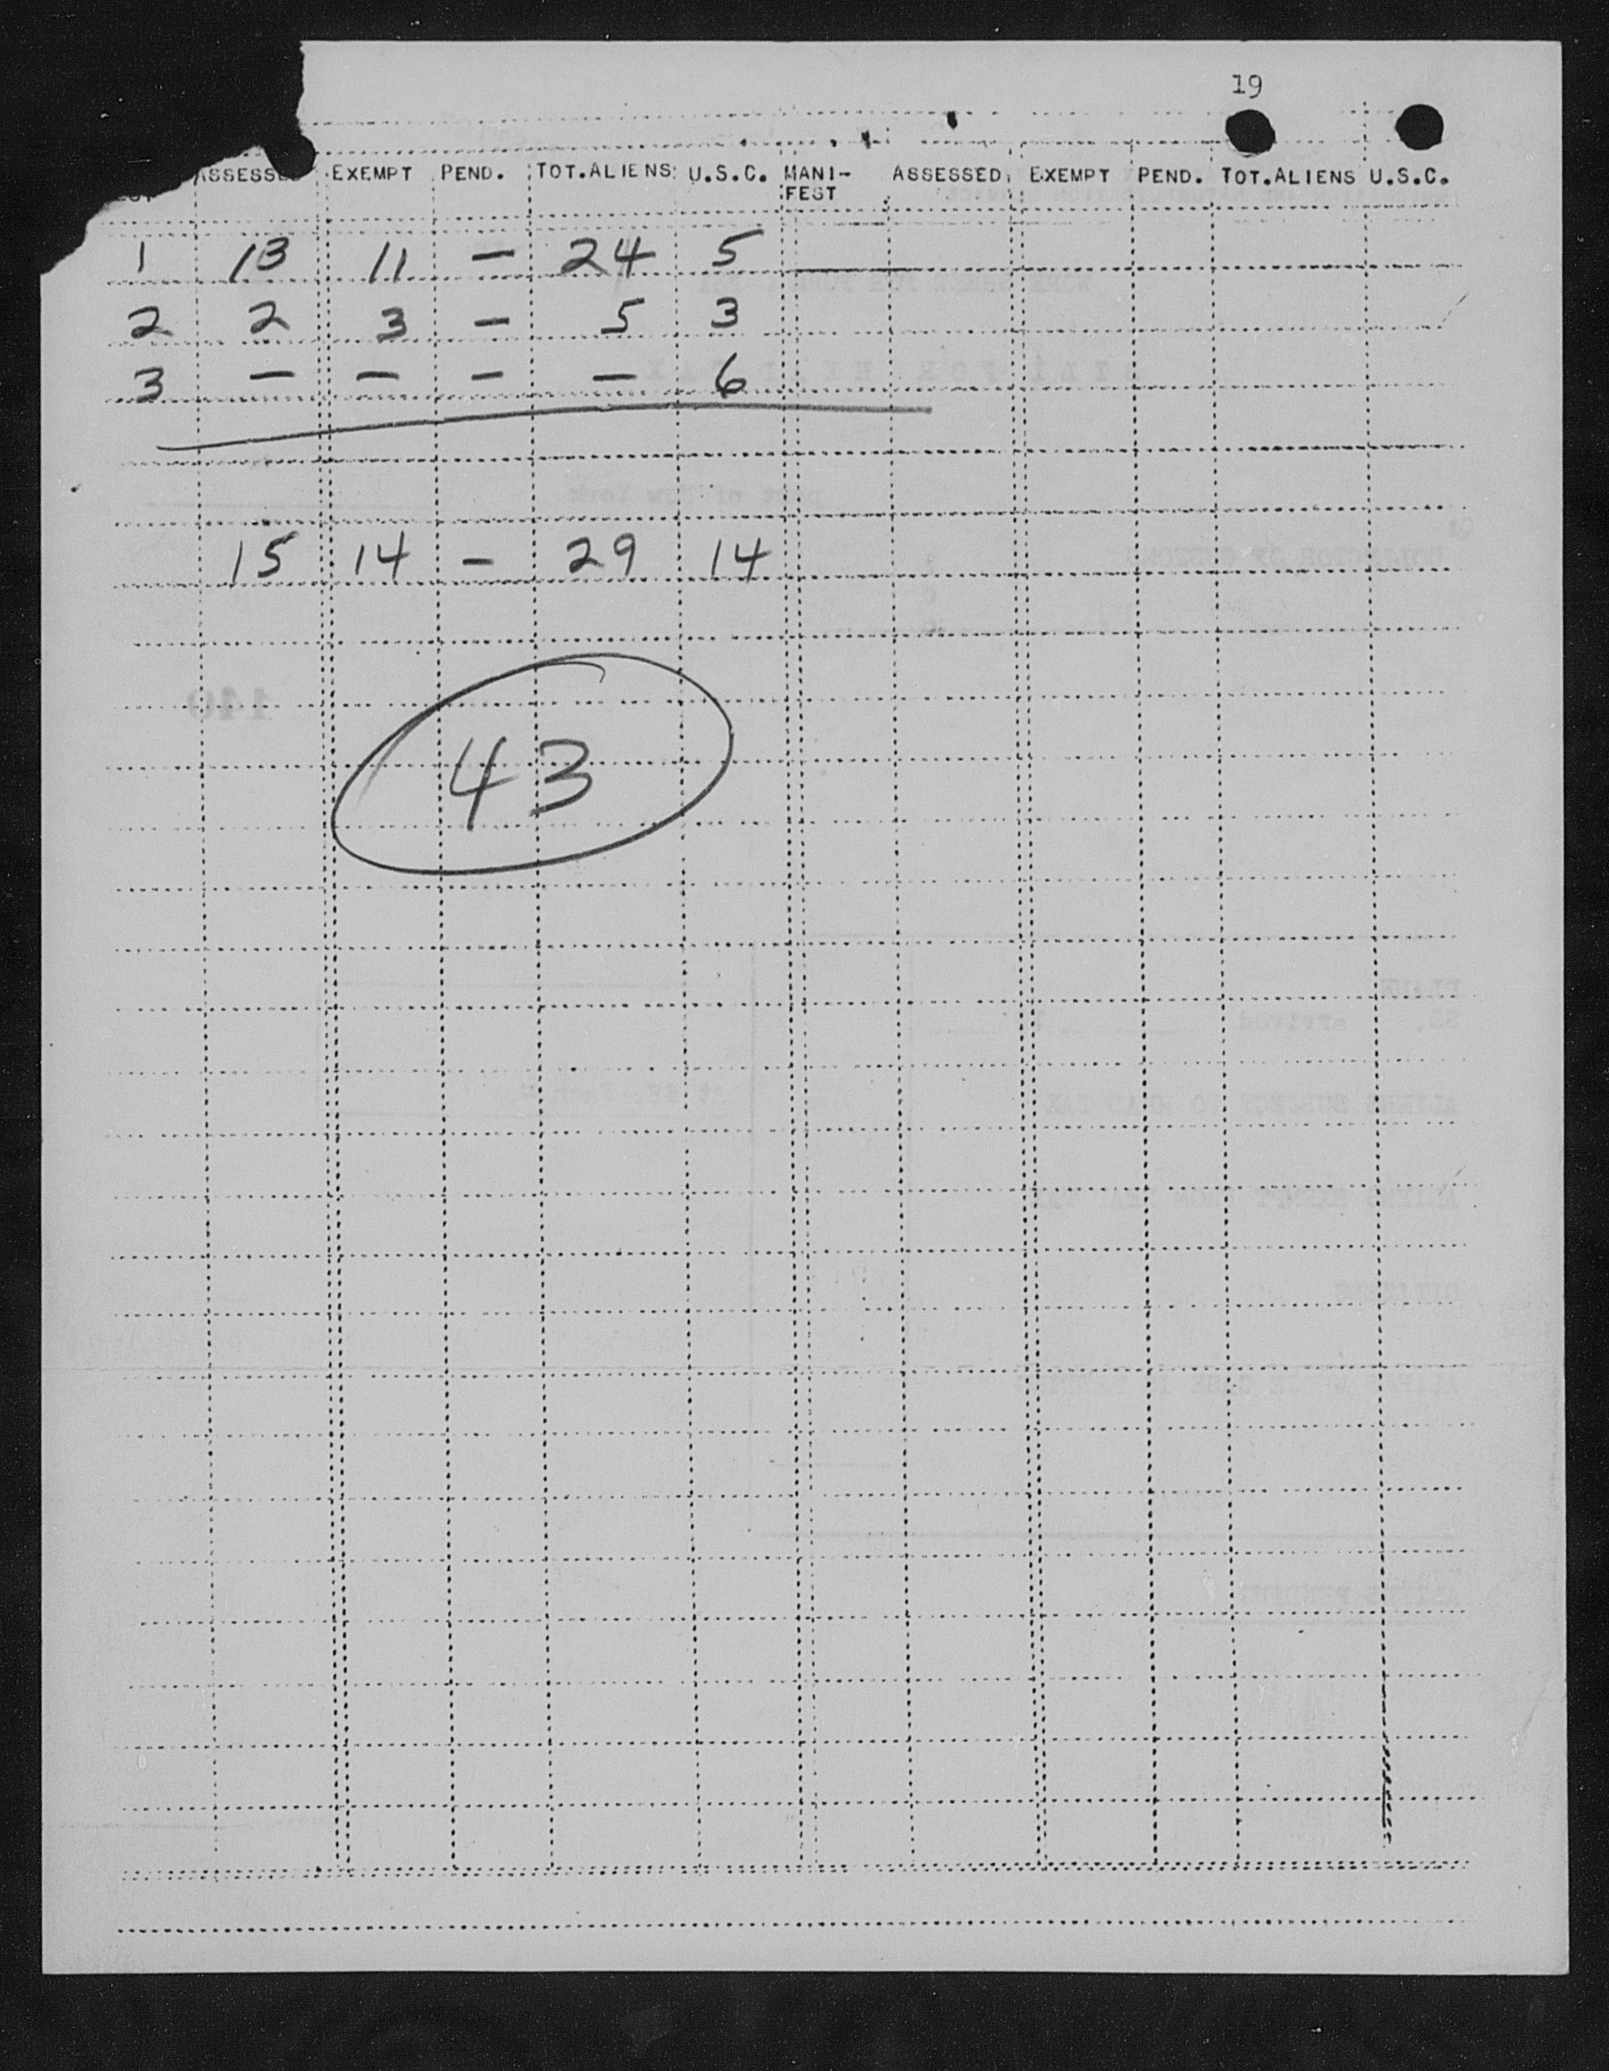 19
ASSESSED EXEMPT PEND. TOT.ALIENS U.S.C. MANI- ASSESSED EXEMPT PEND. TOT.ALIENS U.S.C.
FEST
1 13 11 — 24 5
2 2 3 — 5 3
3 — — — — 6
15 14 — 29 14
43